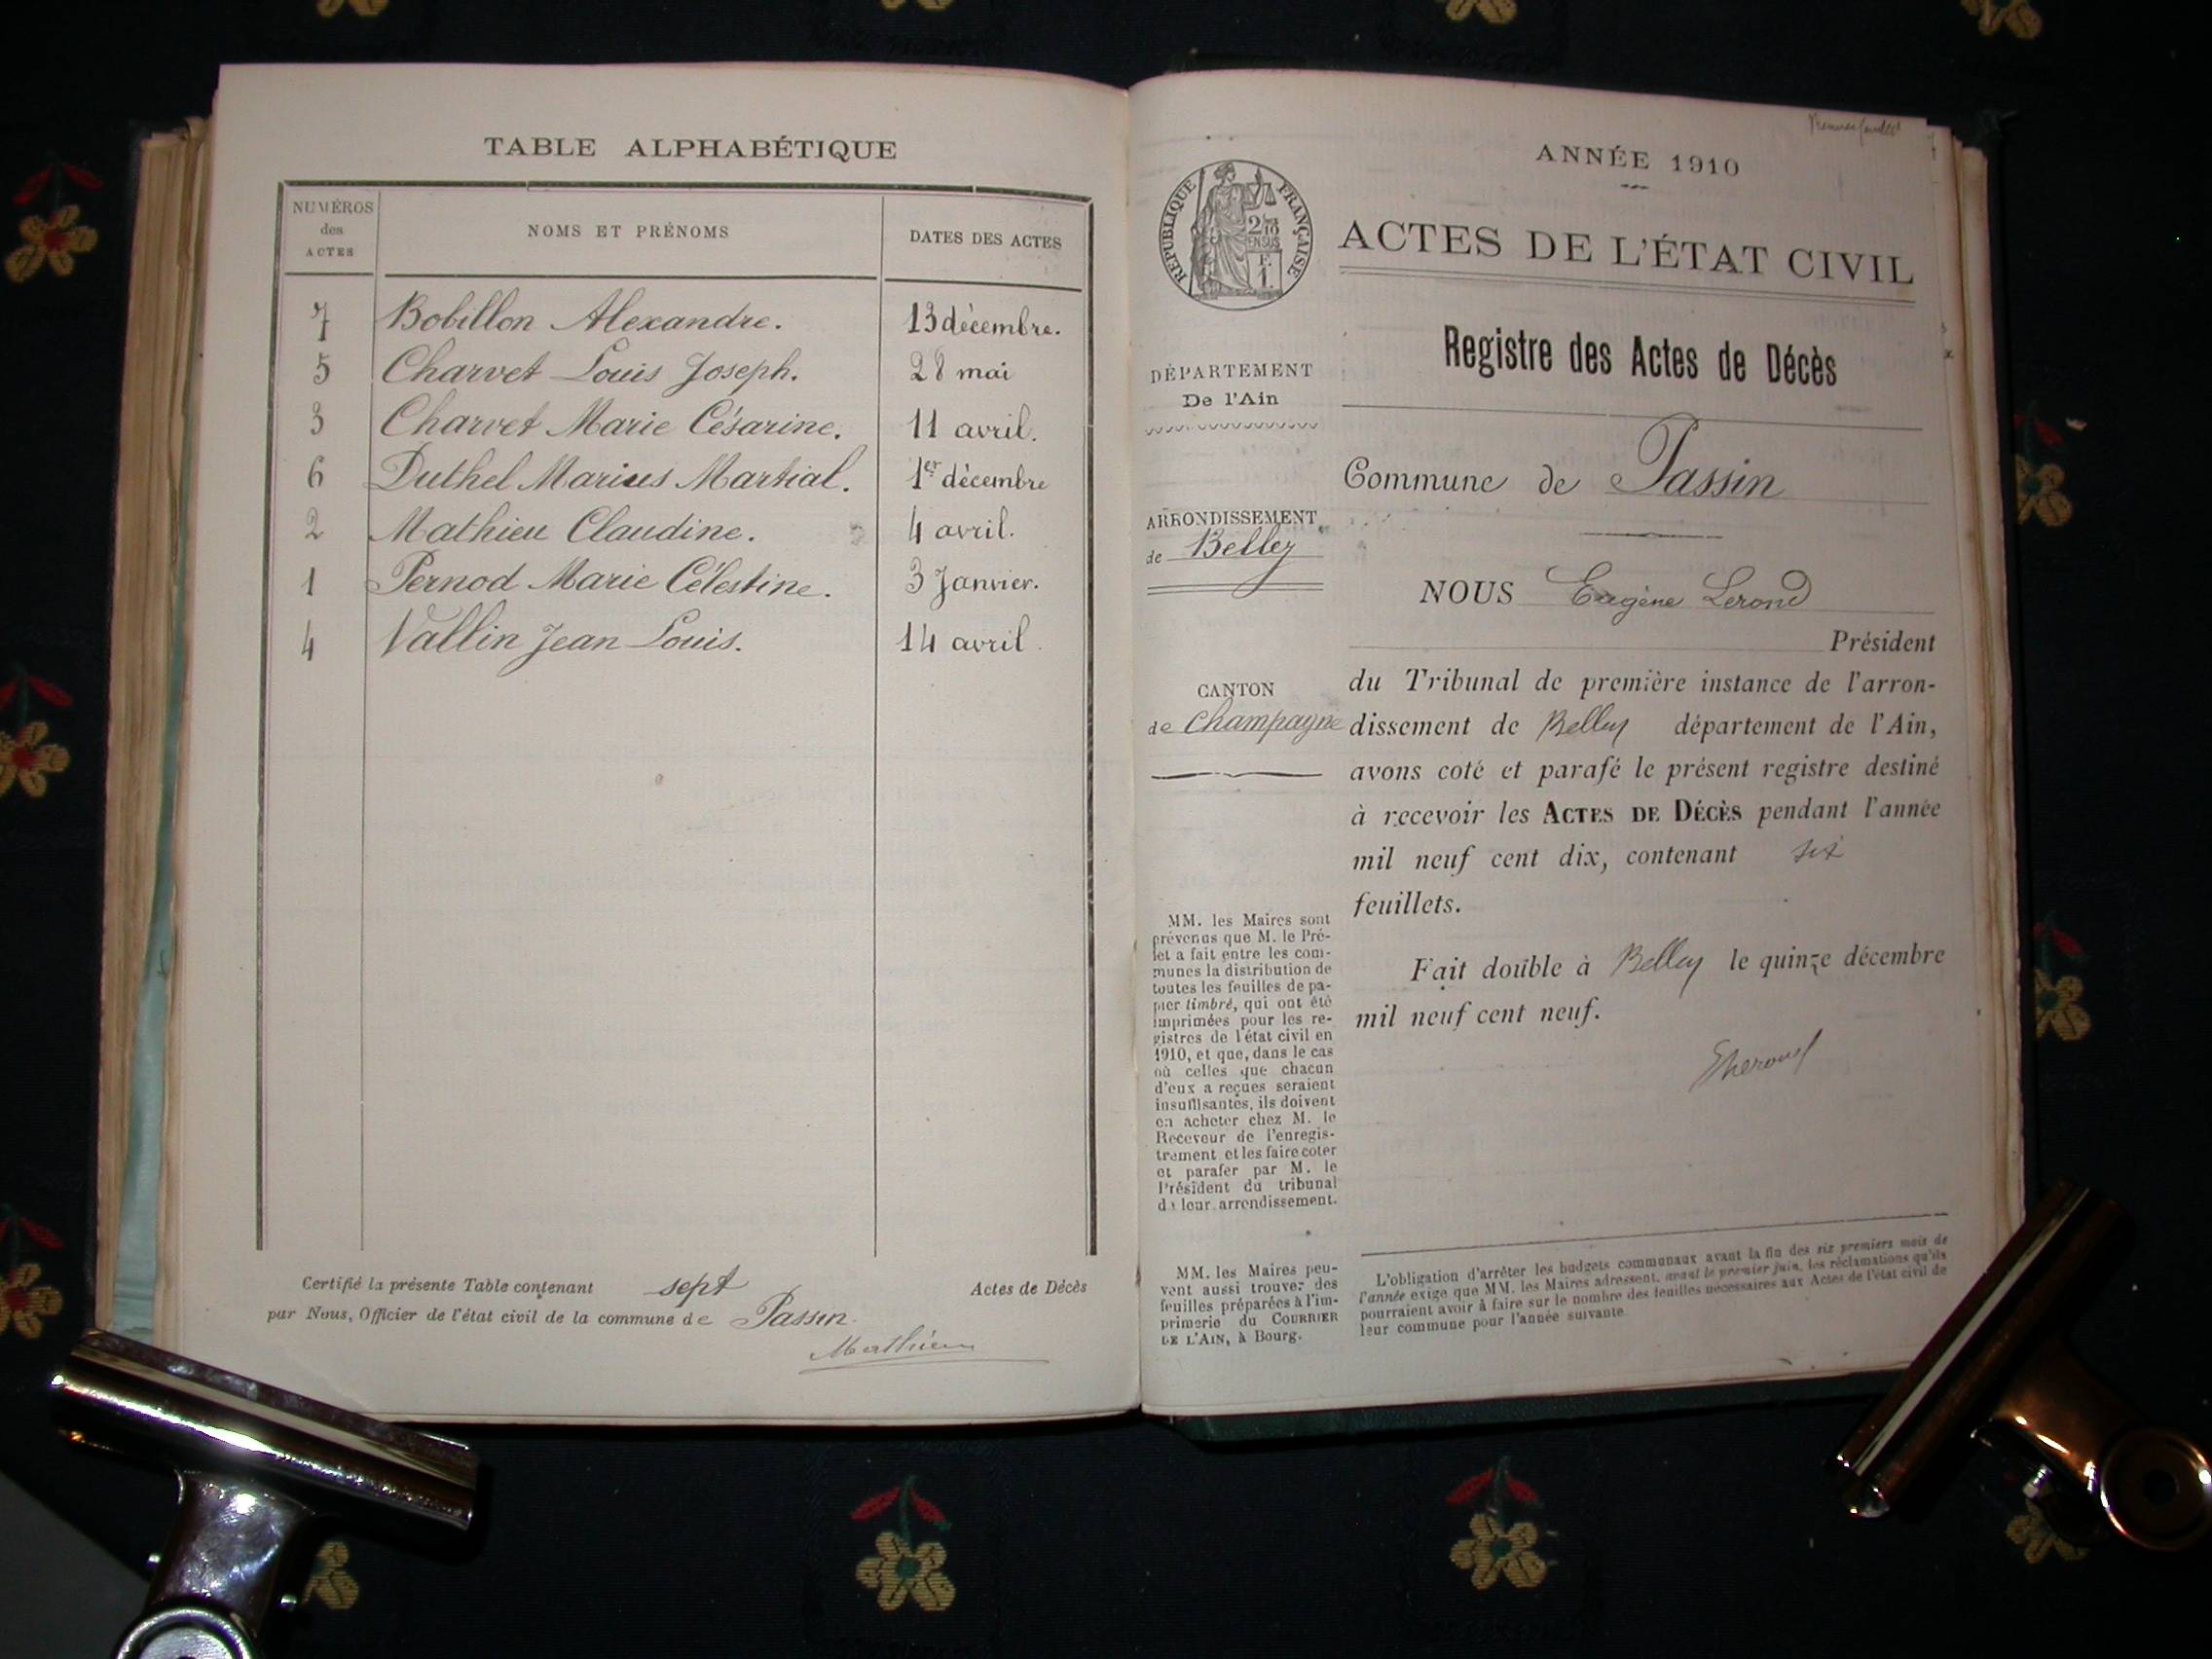 TABLE ALPHABÉTIQUE
NUMÉROS des ACTES NOMS ET PRÉNOMS DATES DES ACTES
7 Bobillon Alexandre. 13 décembre.
5 Charvet Louis Joseph. 28 mai
3 Charvet Marie Césarine. 11 avril.
6 Duthel Marius Martial. 1er décembre
2 Mathieu Claudine. 4 avril.
1 Pernod Marie Célestine. 3 Janvier.
4 Vallin Jean Louis. 14 avril.
Certifié la présente Table contenant sept Actes de Décès
par Nous, Officier de l'état civil de la commune de Passin.
Mathieu
ANNÉE 1910
RÉPUBLIQUE FRANÇAISE
2/10
EN SUS
F.
1.
ACTES DE L'ÉTAT CIVIL
Registre des Actes de Décès
DÉPARTEMENT
De l'Ain
Commune de Passin
ARRONDISSEMENT
de Belley
NOUS Eugène Lerond
Président
CANTON
de Champagne
du Tribunal de première instance de l'arron-
dissement de Belley département de l'Ain,
avons coté et parafé le présent registre destiné
à recevoir les ACTES DE DÉCÈS pendant l'année
mil neuf cent dix, contenant six
feuillets.
Fait double à Belley le quinze décembre
mil neuf cent neuf.
MM. les Maires sont
prévenus que M. le Pré-
fet a fait entre les com-
munes la distribution de
toutes les feuilles de pa-
pier timbré, qui ont été
imprimées pour les re-
gistres de l'état civil en
1910, et que, dans le cas
où celles que chacun
d'eux a reçues seraient
insuffisantes, ils doivent
en acheter chez M. le
Receveur de l'enregis-
trement et les faire coter
et parafer par M. le
Président du tribunal
de leur arrondissement.
MM. les Maires peu-
vent aussi trouver des
feuilles préparées à l'im-
primerie du COURRIER
DE L'AIN, à Bourg.
L'obligation d'arrêter les budgets communaux avant la fin des six premiers mois de
l'année exige que MM. les Maires adressent, avant le premier juin, les réclamations qu'ils
pourraient avoir à faire sur le nombre des feuilles nécessaires aux Actes de l'état civil de
leur commune pour l'année suivante.